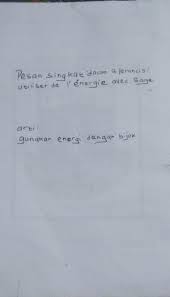 Pesan singkat dalam b.Perancis:
utiliser de l'énergie avec sage
arti:
gunakan energi dengan bijak